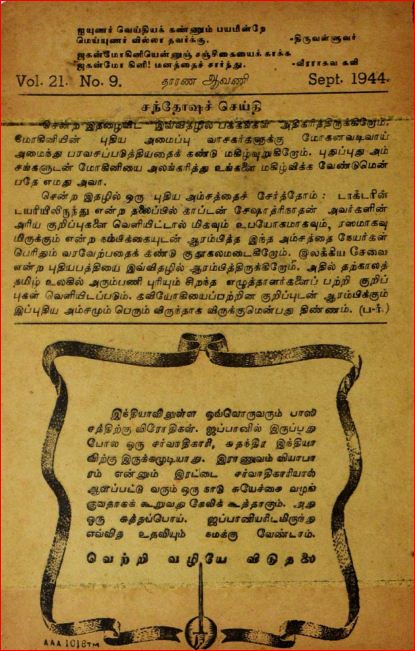 ஐயுணர் வெய்தியக் கண்ணும் பயமின்றே
மெய்யுணர் வில்லா தவர்க்கு. -திருவள்ளுவர்
ஜகன்மோகினியென்னுஞ் சஞ்சிகையைக் காக்க
ஜகன்மோ கினி! மனத்தைச் சார்ந்து. -வீரராகவ கவி
Vol. 21. No. 9. தாரண ஆவணி Sept. 1944.
சந்தோஷச் செய்தி
சென்ற இதழைவிட இவ்விதழில் பக்கங்கள் அதிகரித்திருக்கிறோம்.
மோகினியின் புதிய அமைப்பு வாசகர்களுக்கு மோகனவடிவாய்
அமைந்து பரவசப்படுத்தியதைக் கண்டு மகிழ்வுறுகிறோம். புதுப்புது அம்
சங்களுடன் மோகினியை அலங்கரித்து உங்களை மகிழ்விக்க வேண்டுமென்
பதே எமது அவா.
சென்ற இதழில் ஒரு புதிய அம்சத்தைச் சேர்த்தோம் : டாக்டரின்
டயரியிலிருந்து என்ற தலைப்பில் காப்டன் சேஷாத்ரிநாதன் அவர்களின்
அரிய குறிப்புகளை வெளியிட்டால் மிகவும் உபயோகமாகவும், ரஸமாகவு
மிருக்கும் என்ற நம்பிக்கையுடன் ஆரம்பித்த இந்த அம்சத்தை நேயர்கள்
பெரிதும் வரவேற்பதைக் கண்டு குதூகலமடைகிறோம். இலக்கிய சேவை
என்ற புதியபத்தியை இவ்விதழில் ஆரம்பித்திருக்கிறோம். அதில் தற்காலத்
தமிழ் உலகில் அரும்பணி புரியும் சிறந்த எழுத்தாளர்களைப் பற்றி குறிப்
புகள் வெளியிடப்படும். கவியோகியைப்பற்றின குறிப்புடன் ஆரம்பிக்கும்
இப்புதிய அம்சமும் பெரும் விருந்தாக விருக்குமென்பது திண்ணம். (ப-ர்.)
இந்தியாவிலுள்ள ஒவ்வொருவரும் பாஸி
சத்திற்கு விரோதிகள். ஜப்பாவில் இருப்பது
போல ஒரு சர்வாதிகாரி, சுதந்திர இந்தியா
விற்கு இருக்கமுடியாது. இராணுவம் வியாபா
ரம் என்னும் இரட்டை சர்வாதிகாரியால்
ஆளப்பட்டு வரும் ஒரு நாடு சுயேச்சை வழங்
குவதாகக் கூறுவது கேலிக் கூத்தாகும். அது
ஒரு சுத்தப்பொய். ஜப்பானியரிடமிருந்து
எவ்வித உதவியும் நமக்கு வேண்டாம்.
வெற்றி வழியே விடுதலை
AAA 1018TM